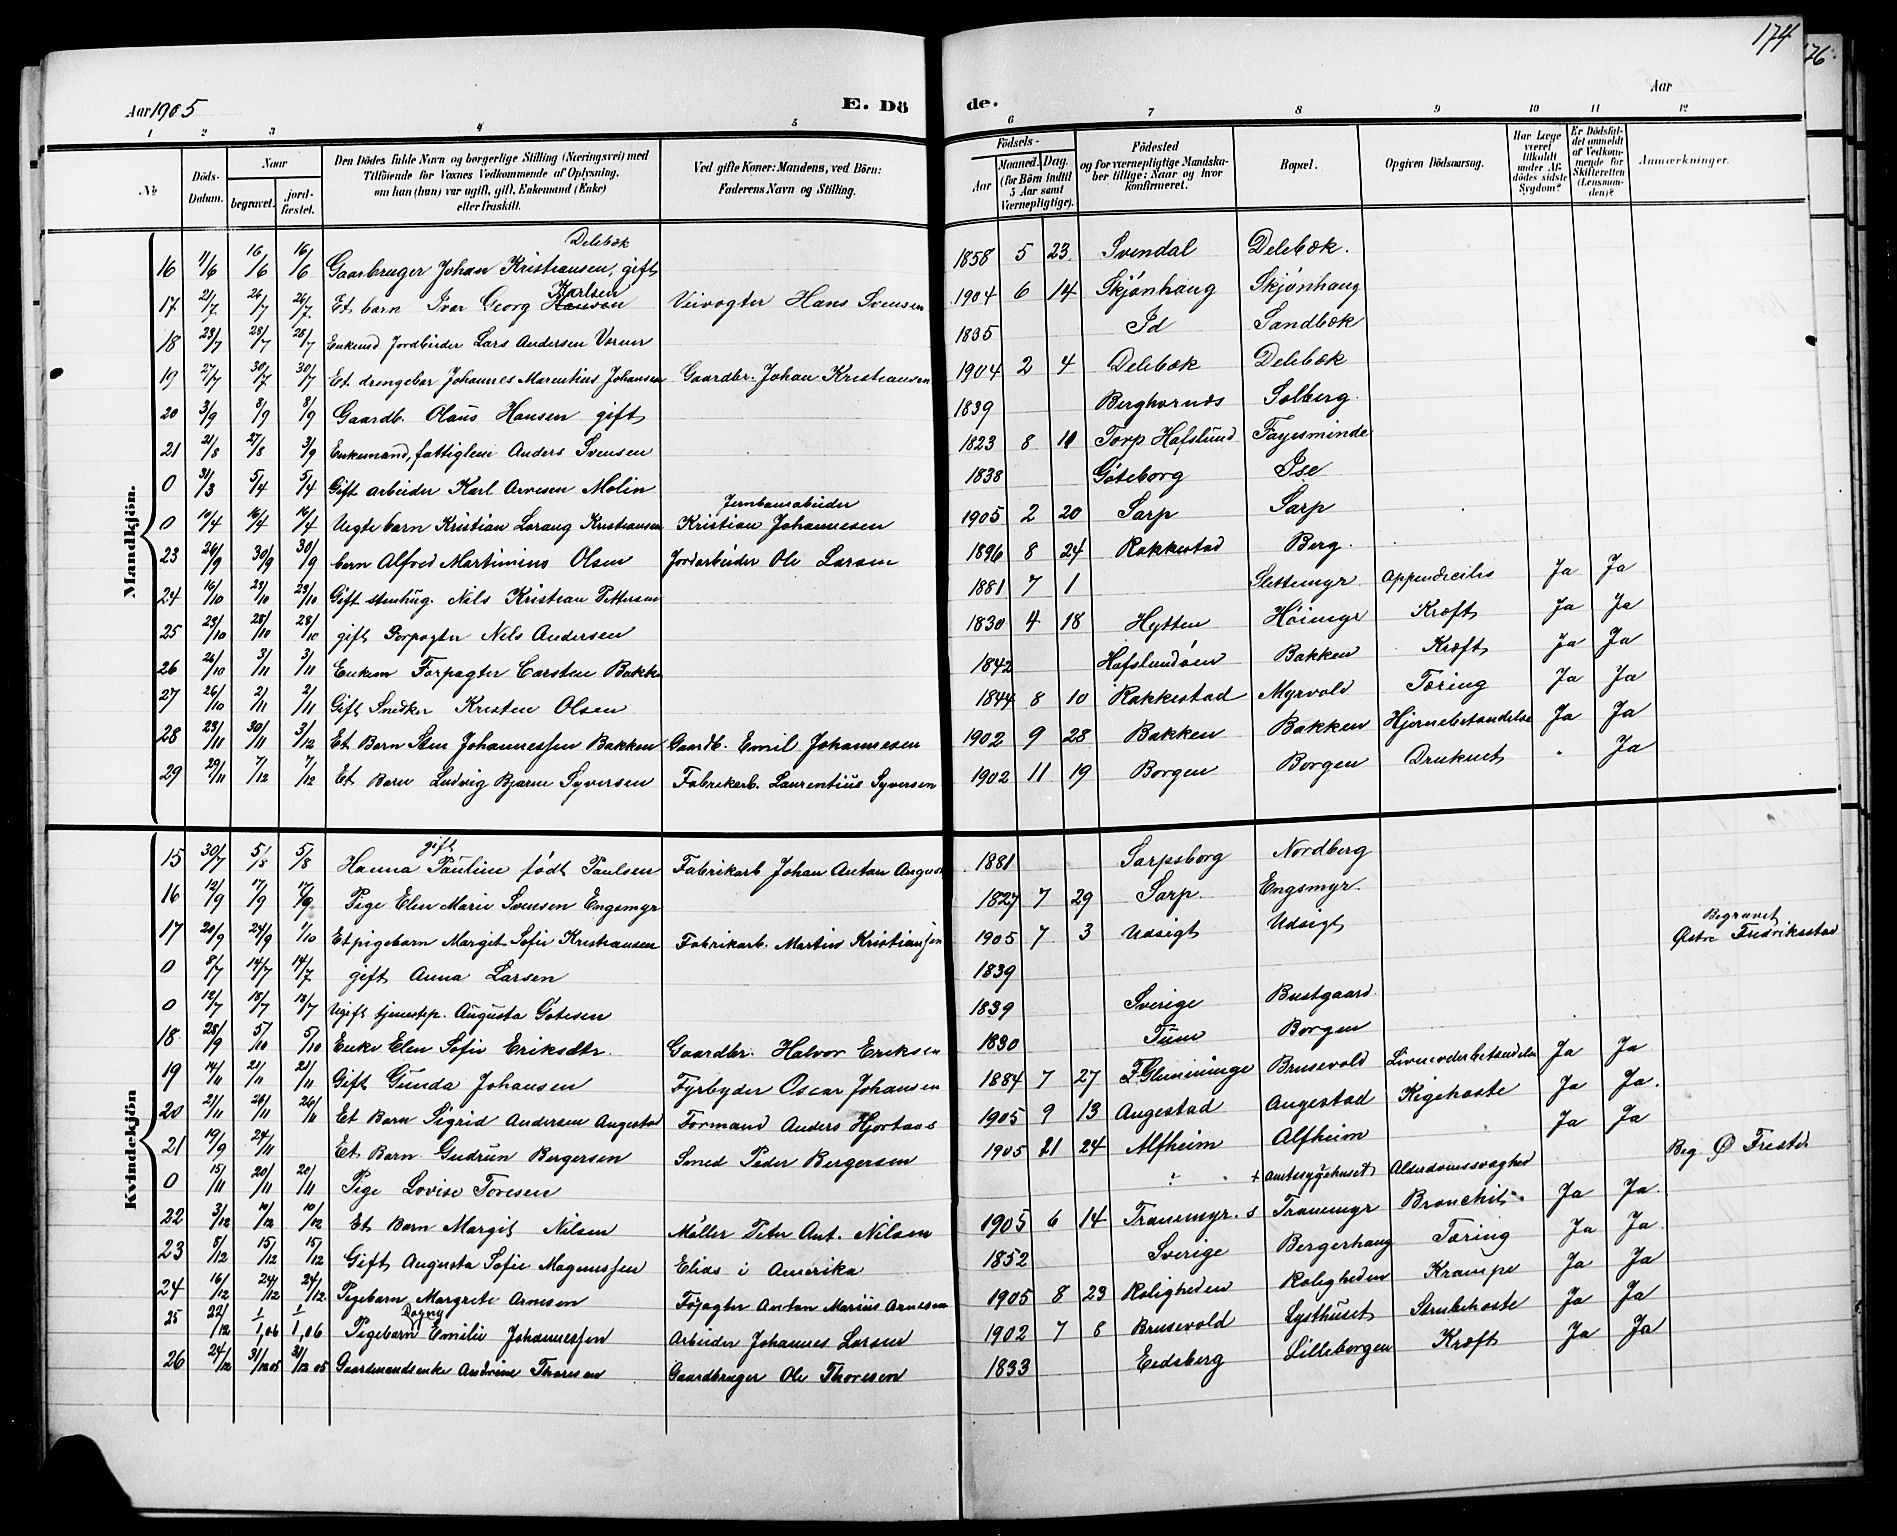 174
176.
Aar 1905
E. Dö
de.
Aar
1 2 3 4 5 6 7 8 9 10 11 12
No
Döds-Datum.
Naar
begravet.
jord-fæstet.
Den Dödes fulde Navn og borgerlige Stilling (Næringsvei) med
Tilföiende for Voxnes Vedkommende af Oplysning,
om han (hun) var ugift, gift, Enkemand (Enke)
eller fraskilt.
Ved gifte Koner: Mandens, ved Börn:
Faderens Navn og Stilling.
Födsels-
Aar
Maaned. Dag.
(for Börn indtil
5 Aar samt
Værnepligtige).
Födested
og for værnepligtige Mandska-
ber tillige: Naar og hvor
konfirmeret.
Bopæl.
Opgiven Dödsaarsag.
Har Læge
været
tilkaldt
under Af-
dödes sidste
Sygdom?
Er Dödsfal-
det anmeldt
af Vedkom-
mende for
Skifteretten
(Lensman-
den)?
Anmærkninger.
Mandkjön.
Delebæk
16 11/6 16/6 16/6 Gaarbruger Johan Kristiansen, gift 1858 5 23 Svendal Delebæk.
Karlsen
17 21/7 26/7 26/7 Et barn Ivar Georg Veivogter Hans Svensen 1904 6 14 Skjønhaug Skjønhaug
18 23/7 28/7 28/7 Enkemd Jordbeider Lars Andersen Varner 1835 Id Sandbæk
19 27/7 30/7 30/7 Et drengebar Johannes Marentius Johansen Gaardbr. Johan Kristiansen 1904 2 4 Delebæk Delebæk
20 3/9 8/9 8/9 Gaardb. Olaus Hansen gift 1839 Berghornæs Solberg.
21 21/8 27/8 3/9 Enkemand, fattiglem Anders Svensen 1823 8 11 Torp Hafslund Fayesminde
0 31/3 5/4 5/4 Gift arbeider Karl Arvesen Molin 1838 Göteborg Ise
Jernbanearbeider
0 10/4 16/4 16/4 Uegte barn Kristian Lorang Kristiansen Kristian Johannesen 1905 2 20 Sarp Sarp
23 26/9 30/9 30/9 barn Alfred Martinius Olsen Jordarbeider Ole Larsen 1896 8 24 Rakkestad Berg.
24 16/10 23/10 23/10 Gift stenhug. Nils Kristian Pettersen 1881 7 1 Slettemyr Appendecitis Ja Ja
25 23/10 28/10 28/10 gift Forpagter Nils Andersen 1830 4 18 Hytten Höimyr Kræft Ja Ja
26 26/10 3/11 3/11 Enkem Forpagter Carsten Bakken 1842 Hafslundöen Bakken Kræft Ja Ja
27 26/10 2/11 2/11 Gift Snedker Kristen Olsen 1844 8 10 Rakkestad Myrvold Tæring Ja Ja
28 23/11 30/11 3/12 Et Barn Sten Johannessen Bakken Gaardb. Emil Johannesen 1902 9 28 Bakken Bakken Hjernebetændelse Ja Ja
29 29/11 7/12 7/12 Et Barn Ludvig Bjarne Syversen Fabrikarb. Laurentius Syversen 1902 11 19 Borgen Borgen Druknet " Ja
Kvindekjön
gift
15 30/7 5/8 5/8 Hanna Pauline födt Paulsen Fabrikarb Johan Anton August 1881 Sarpsborg Nordberg
16 12/9 17/9 17/9 Pige Elen Marie Svensen Engsmyr 1827 7 29 Sarp. Engsmyr.
17 20/9 24/9 1/10 Et pigebarn Margit Sofie Kristiansen Fabrikarb. Martin Kristiansen 1905 7 3 Udsigt Udsigt Begravet Østre Fredriksstad
0 8/7 14/7 14/7 gift Anna Larsen 1839
0 12/7 18/7 18/7 Ugift tjenestep. Augusta Götesen 1839 Sverige Bustgaard.
18 28/9 5/10 5/10 Enke Elen Sofie Eriksdtr. Gaardbr. Halvor Eriksen 1830 Tune Borgen
19 14/11 21/11 21/11 Gift Gunda Johansen Fyrbyder Oscar Johansen 1884 7 27 F Glemminge Brusevold Livmoderbetændelse Ja Ja
20 21/11 26/11 26/11 Et Barn Sigrid Andersen Angestad Formand Anders Hjortaas 1905 9 13 Angestad Angestad Kigehoste Ja Ja.
21 19/9 24/11 Et Barn Gudrun Bergersen Smed Peder Bergersen 1905 21 24 Alfheim Alfheim Ja Ja
0 15/11 20/11 20/11 Pige Lovise Toresen + Amtssygehuset Alderdomssvaghed Beg Ø Frestad
22 3/12 10/12 10/12 Et Barn Margit Nilsen Möller Peter Ant. Nilsen 1905 6 14 Tranemyr.s Tranemyr Bronchit. Ja Ja.
23 8/12 15/12 15/12 Gift Augusta Sofie Magnussen Elias i Amerika 1852 Sverige Bergerhaug Tæring Ja Ja.
24 16/12 24/12 24/12 Pigebarn Margrete Arnesen Fopagter Anton Marius Arnesen 1905 8 23 Roligheden Roligheden Krampe Ja Ja
Dagny
25 22/12 1/1,06 1/1,06 Pigebarn Emilie Johannessen Arbeider Johannes Larsen 1902 7 8 Brusevold Lysthuset Strubehoste Ja Ja
26 24/12 31/12 05 31/12 05 Gaardmandsenke Andrine Thoresen Gaardbruger Ole Thoresen 1833 Eidsberg Lilleborgen Kræft Ja Ja